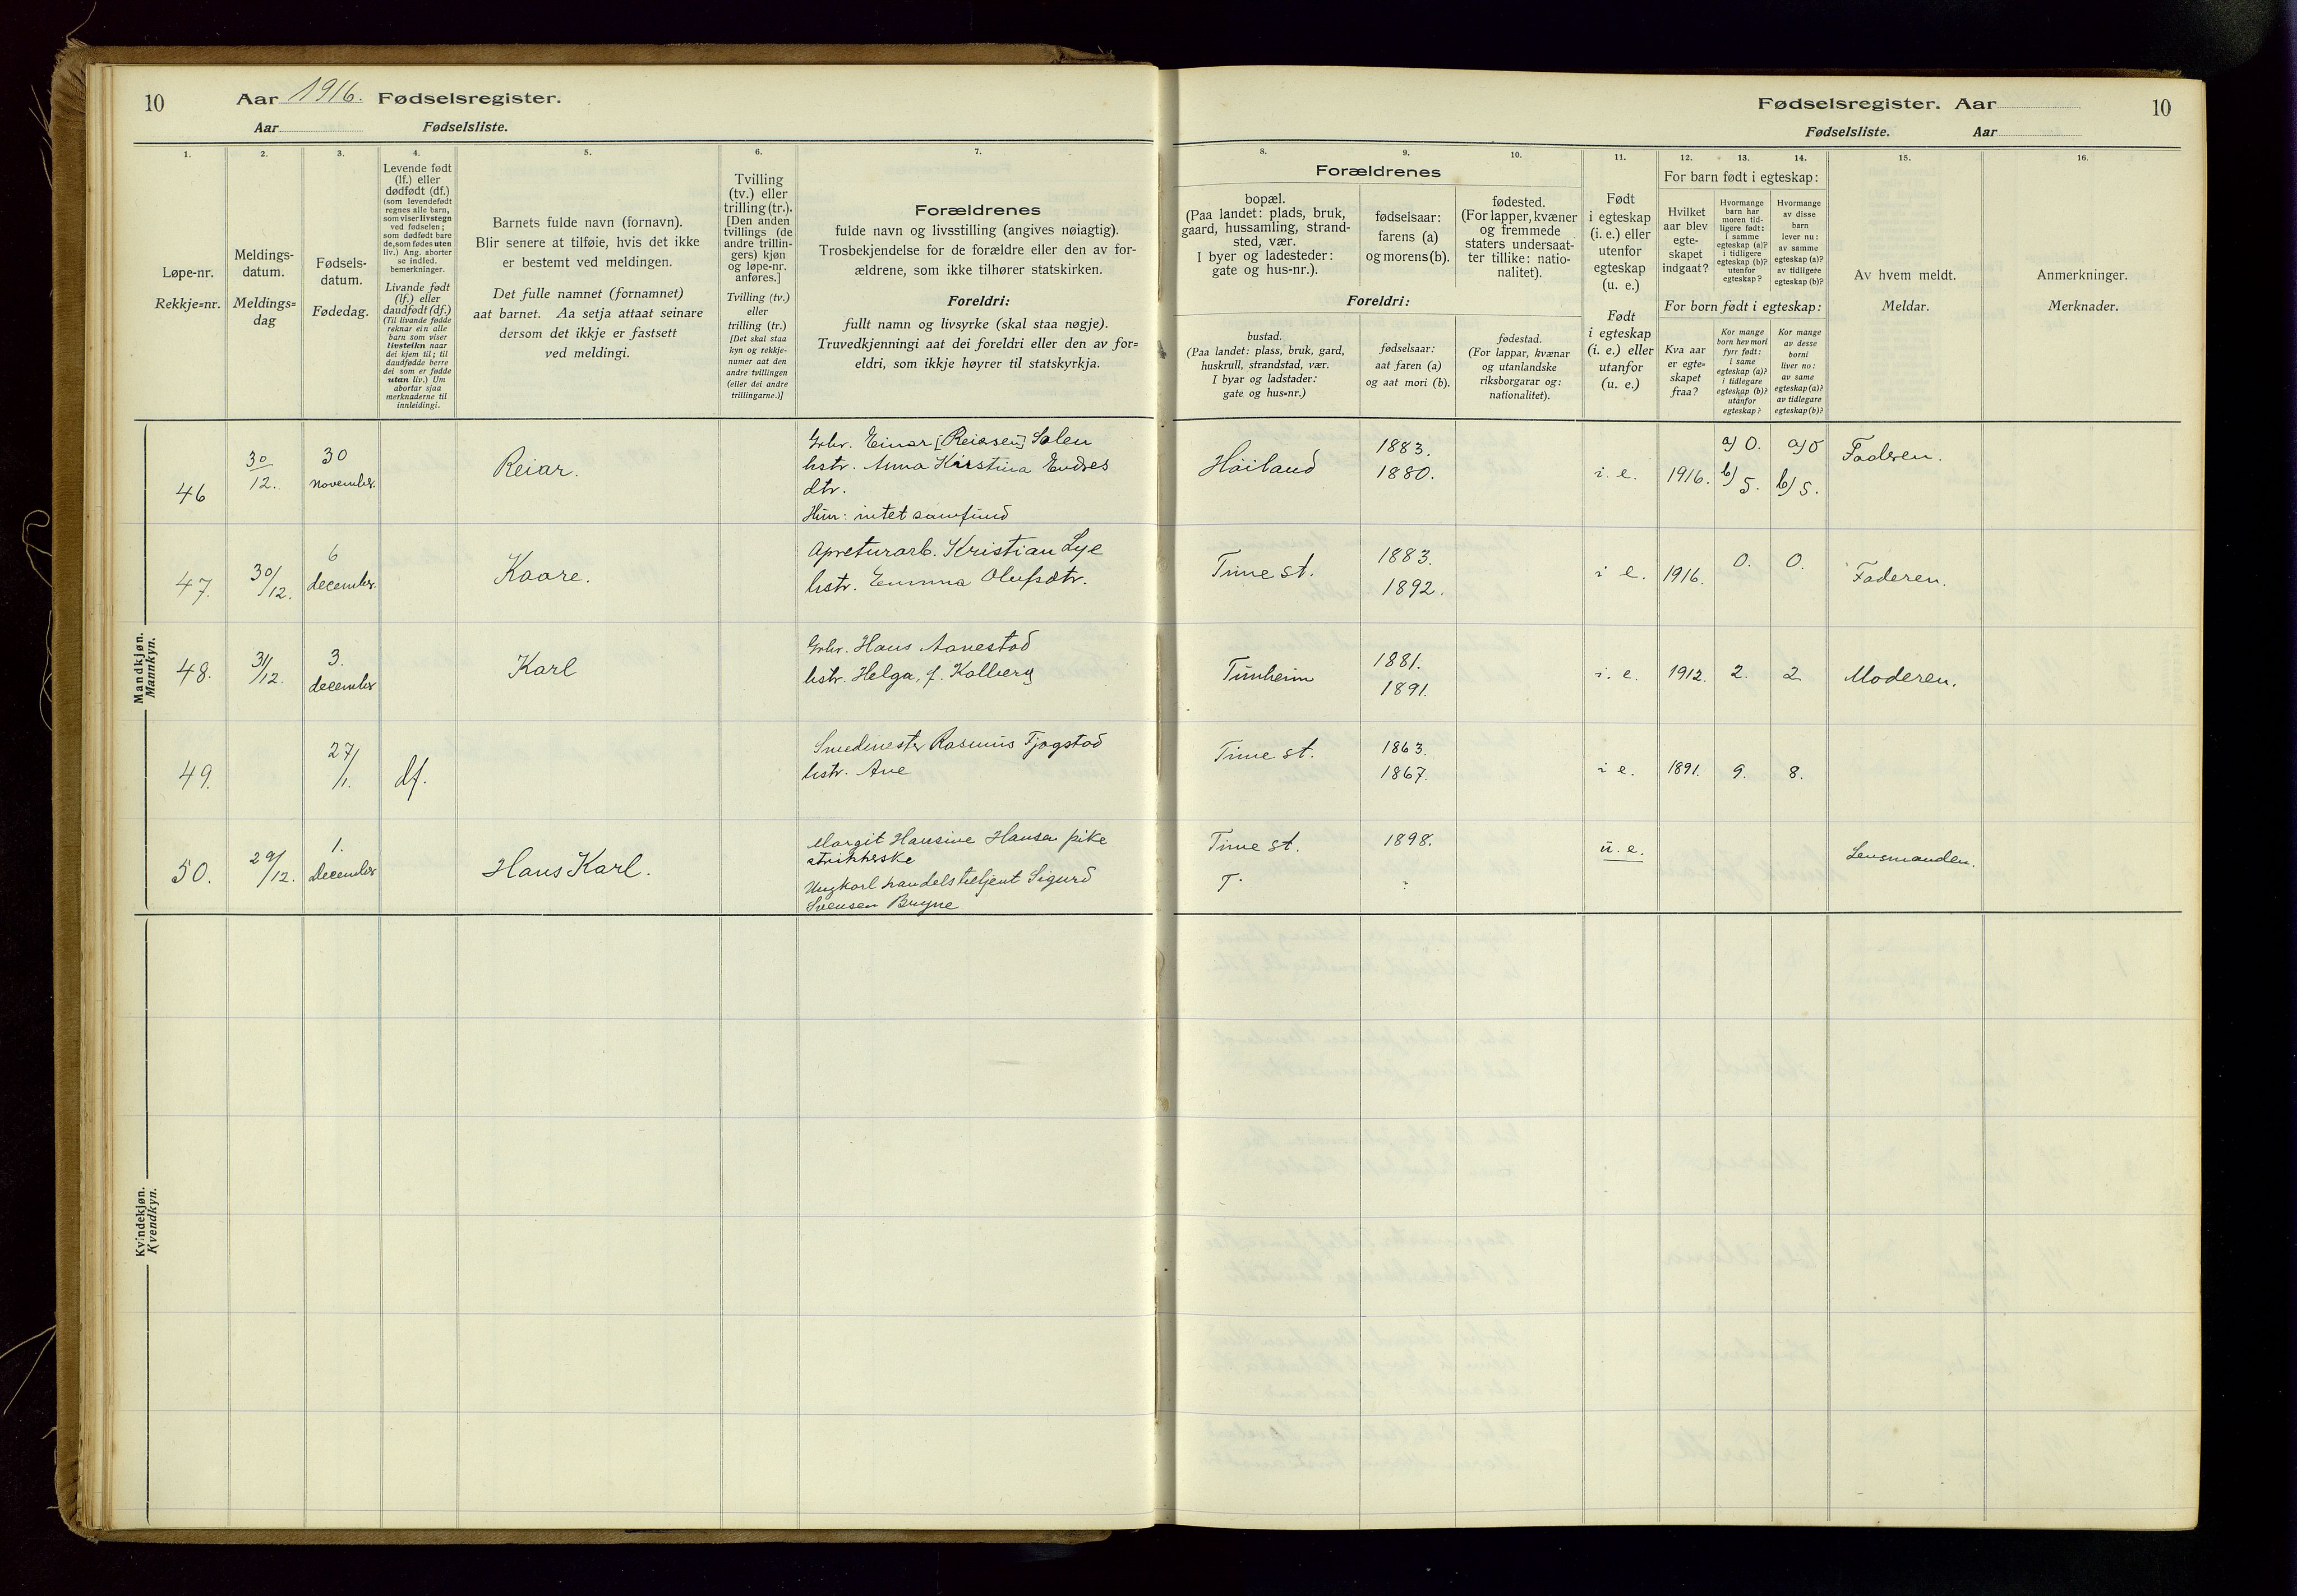 10
Aar 1916. Fødselsregister.
Aar Fødselsliste.
Fødselsregister. Aar
10
Fødselsliste. Aar
1.
Løpe-nr.
Rekkje=nr.
2.
Meldings-
datum.
Meldings=
dag
3.
Fødsels-
datum.
Fødedag.
4.
Levende født
(lf.) eller
dødfødt (df.)
(som levendefødt
regnes alle barn,
som viser livstegn
ved fødselen;
som dødfødt bare
de, som fødes uten
liv.) Ang. aborter
se indled.
bemerkninger.
Livande født
(lf.) eller
daudfødt (df.)
(Til livande fødde
reknar ein alle
barn som viser
livsteikn naar
dei kjem til; til
daudfødde berre
dei som er fødde
utan liv.) Um
abortar sjaa
merknaderne til
innleidingi.
5.
Barnets fulde navn (fornavn).
Blir senere at tilføie, hvis det ikke
er bestemt ved meldingen.
Det fulle namnet (fornamnet)
aat barnet. Aa setja attaat seinare
dersom det ikkje er fastsett
ved meldingi.
6.
Tvilling
(tv.) eller
trilling (tr.).
[Den anden
tvillings (de
andre trillin-
gers) kjøn
og løpe-nr.
anføres.]
Tvilling (tv.)
eller
trilling (tr.)
[Det skal staa
kyn og rekkje-
numer aat den
andre tvillingen
(eller dei andre
trillingarne.)]
7.
Forældrenes
fulde navn og livsstilling (angives nøiagtig).
Trosbekjendelse for de forældre eller den av for-
ældrene, som ikke tilhører statskirken.
Foreldri:
fullt namn og livsyrke (skal staa nøgje).
Truvedkjenningi aat dei foreldri eller den av for=
eldri, som ikkje høyrer til statskyrkja.
8.
9.
10.
Forældrenes
bopæl.
(Paa landet: plads, bruk,
gaard, hussamling, strand-
sted, vær.
I byer og ladesteder:
gate og hus-nr.).
fødselsaar:
farens (a)
og morens (b).
fødested.
(For lapper, kvæner
og fremmede
staters undersaat-
ter tillike: natio-
nalitet).
Foreldri:
bustad.
(Paa landet: plass, bruk, gard,
huskrull, strandstad, vær.
I byar og ladstader:
gate og hus=nr.)
fødselsaar:
aat faren (a)
og aat mori (b).
fødestad.
(For lappar, kvænar
og utanlandske
riksborgarar og:
nationalitet).
11.
Født
i egteskap
(i. e.) eller
utenfor
egteskap
(u. e.)
Født
i egteskap
(i. e.) eller
utanfor
(u. e.)
12.
13.
14.
For barn født i egteskap:
Hvilket
aar blev
egte-
skapet
indgaat?
Hvormange
barn har
moren tid-
ligere født:
i samme
egteskap (a)?
i tidligere
egteskap (b)?
utenfor
egteskap?
Hvormange
av disse
barn
lever nu:
av samme
egteskap (a)?
av tidligere
egteskap (b)?
For born født i egteskap:
Kva aar
er egte=
skapet
fraa?
Kor mange
born hev mori
fyrr født:
i same
egteskap (a)?
i tidlegare
egteskap (b)?
utanfor
egteskap?
Kor mange
av desse
borni
liver no:
av same
egteskap (a)?
av tidlegare
egteskap (b)?
15.
Av hvem meldt.
Meldar.
16.
Anmerkninger.
Merknader.
Mandkjøn.
Mannkyn.
46
30/12.
30
november.
Reiar.
Grbr. Einar [Reiarsen] Salen
hstr. Anna Kirstina Endres
dtr.
Hun: intet samfund
Høiland
1883.
1880.
i. e.
1916.
a) 0.
b) 5.
a) 0
b) 5.
Faderen.
47.
30/12.
6
december.
Kaare.
Apreturarb. Kristian Lye
hstr. Emma Olufsdtr.
Time st.
1883.
1892.
i e.
1916.
0.
0.
Faderen.
48.
31/12.
3.
december
Karl
Grbr. Hans Aanestad
hstr. Helga, f. Kalberg
Tunheim
1881.
1891.
i. e.
1912.
2.
2
Moderen.
49.
27/1.
df.
Smedmester Rasmus Tjøgstad
hstr. Ane
Time st.
1863.
1867.
i e.
1891.
9.
8.
50.
29/12.
1.
December
Hans Karl.
Margit Hansine Hansen pike
strikkerske
Ungkarl handelsbetjent Sigurd
Svensen Bryne
Time st.
T.
1898.
?
u. e.
Lensmanden.
Kvindekjøn.
Kvendkyn.